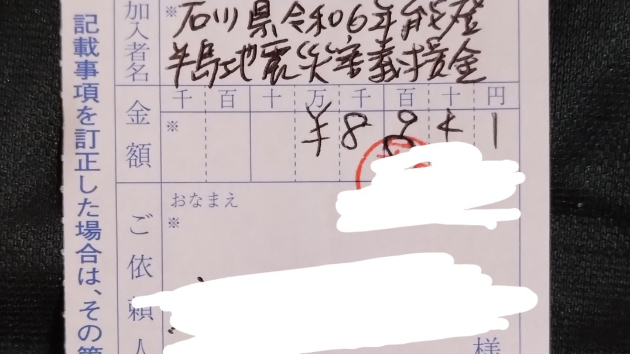 加入者名
※石川県令和6年能登
半島地震災害義援金
金額
千百十万千百十円
※
¥8941
おなまえ
※
ご依頼人
様
記載事項を訂正した場合は、その